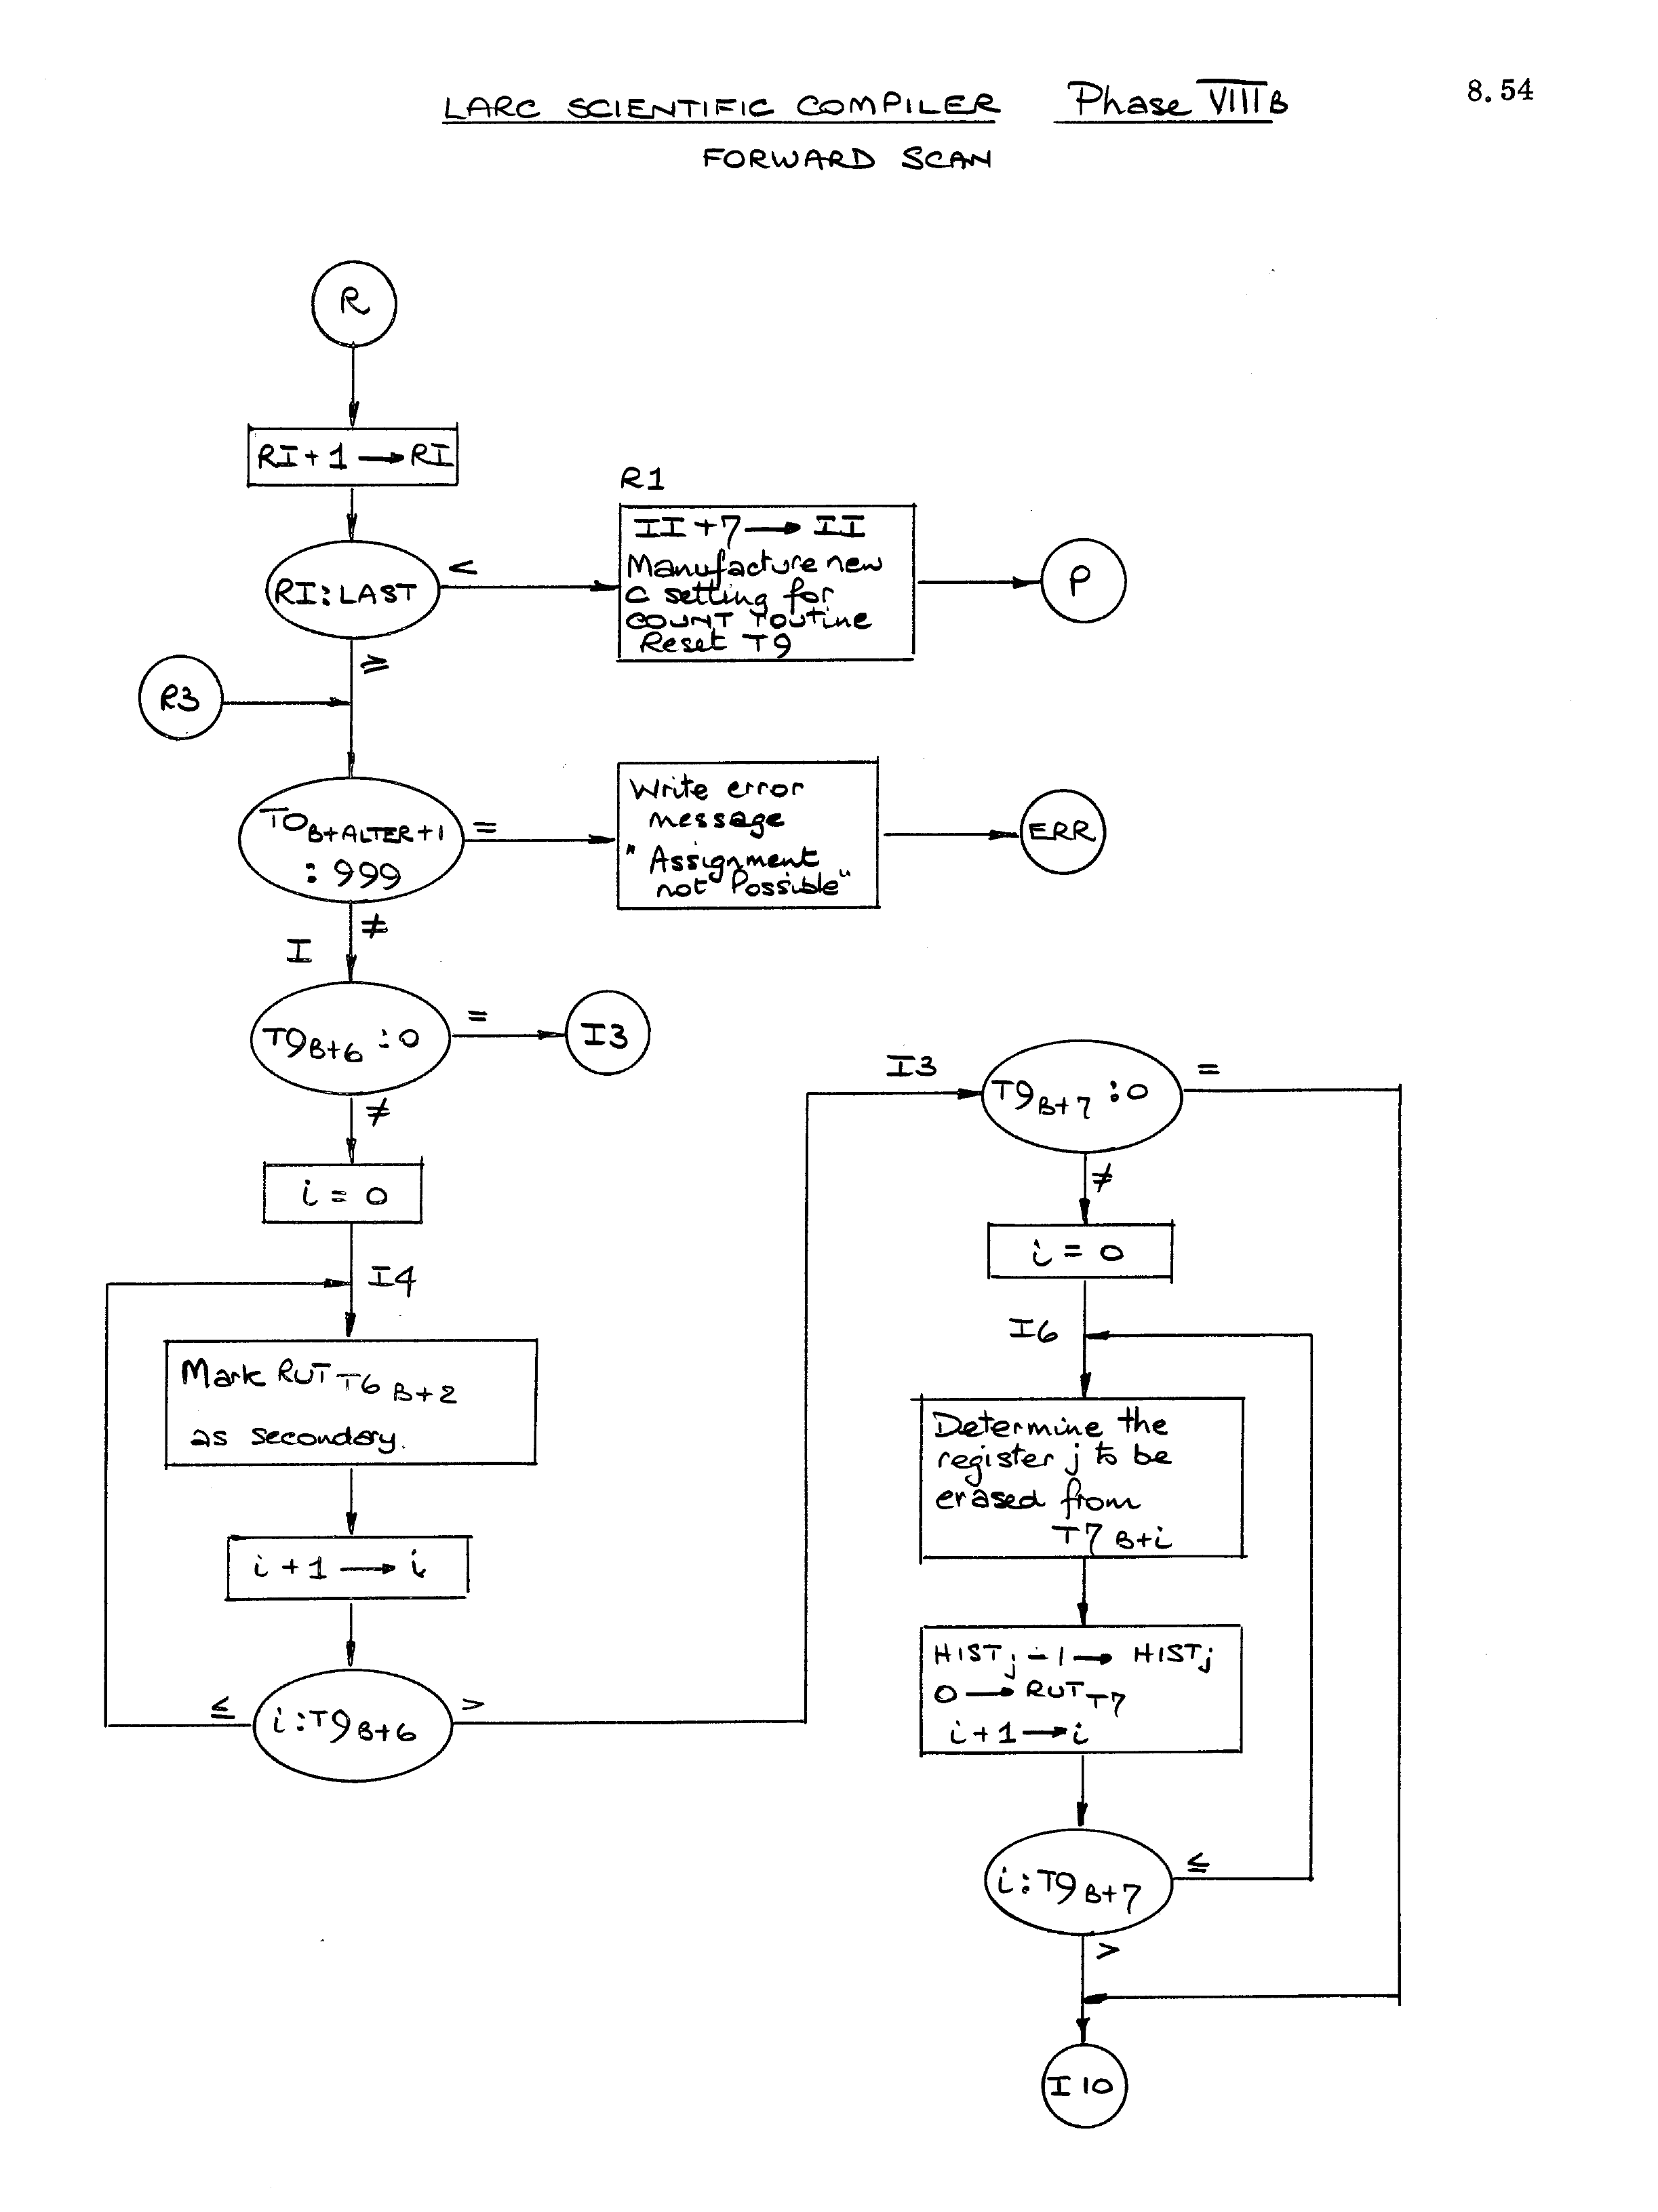 LARC SCIENTIFIC COMPILER Phase VIIIB 8.54
FORWARD SCAN
R
RI+1 → RI
RI:LAST
<
≥
R1
II+7 → II
Manufacture new
C setting for
COUNT routine
Reset T9
P
R3
T0B+ALTER+1
:999
=
≠
Write error
message
"Assignment
not Possible"
ERR
I
T9B+6 :0
=
≠
I3
i = 0
I4
Mark RUT T6 B+2
as secondary.
i+1 → i
i:T9B+6
≤
>
I3
T9B+7 :0
=
≠
i = 0
I6
Determine the
register j to be
erased from
T7 B+i
HISTj -1 → HISTj
0 → RUT T7
i+1 → i
i:T9B+7
≤
>
I10